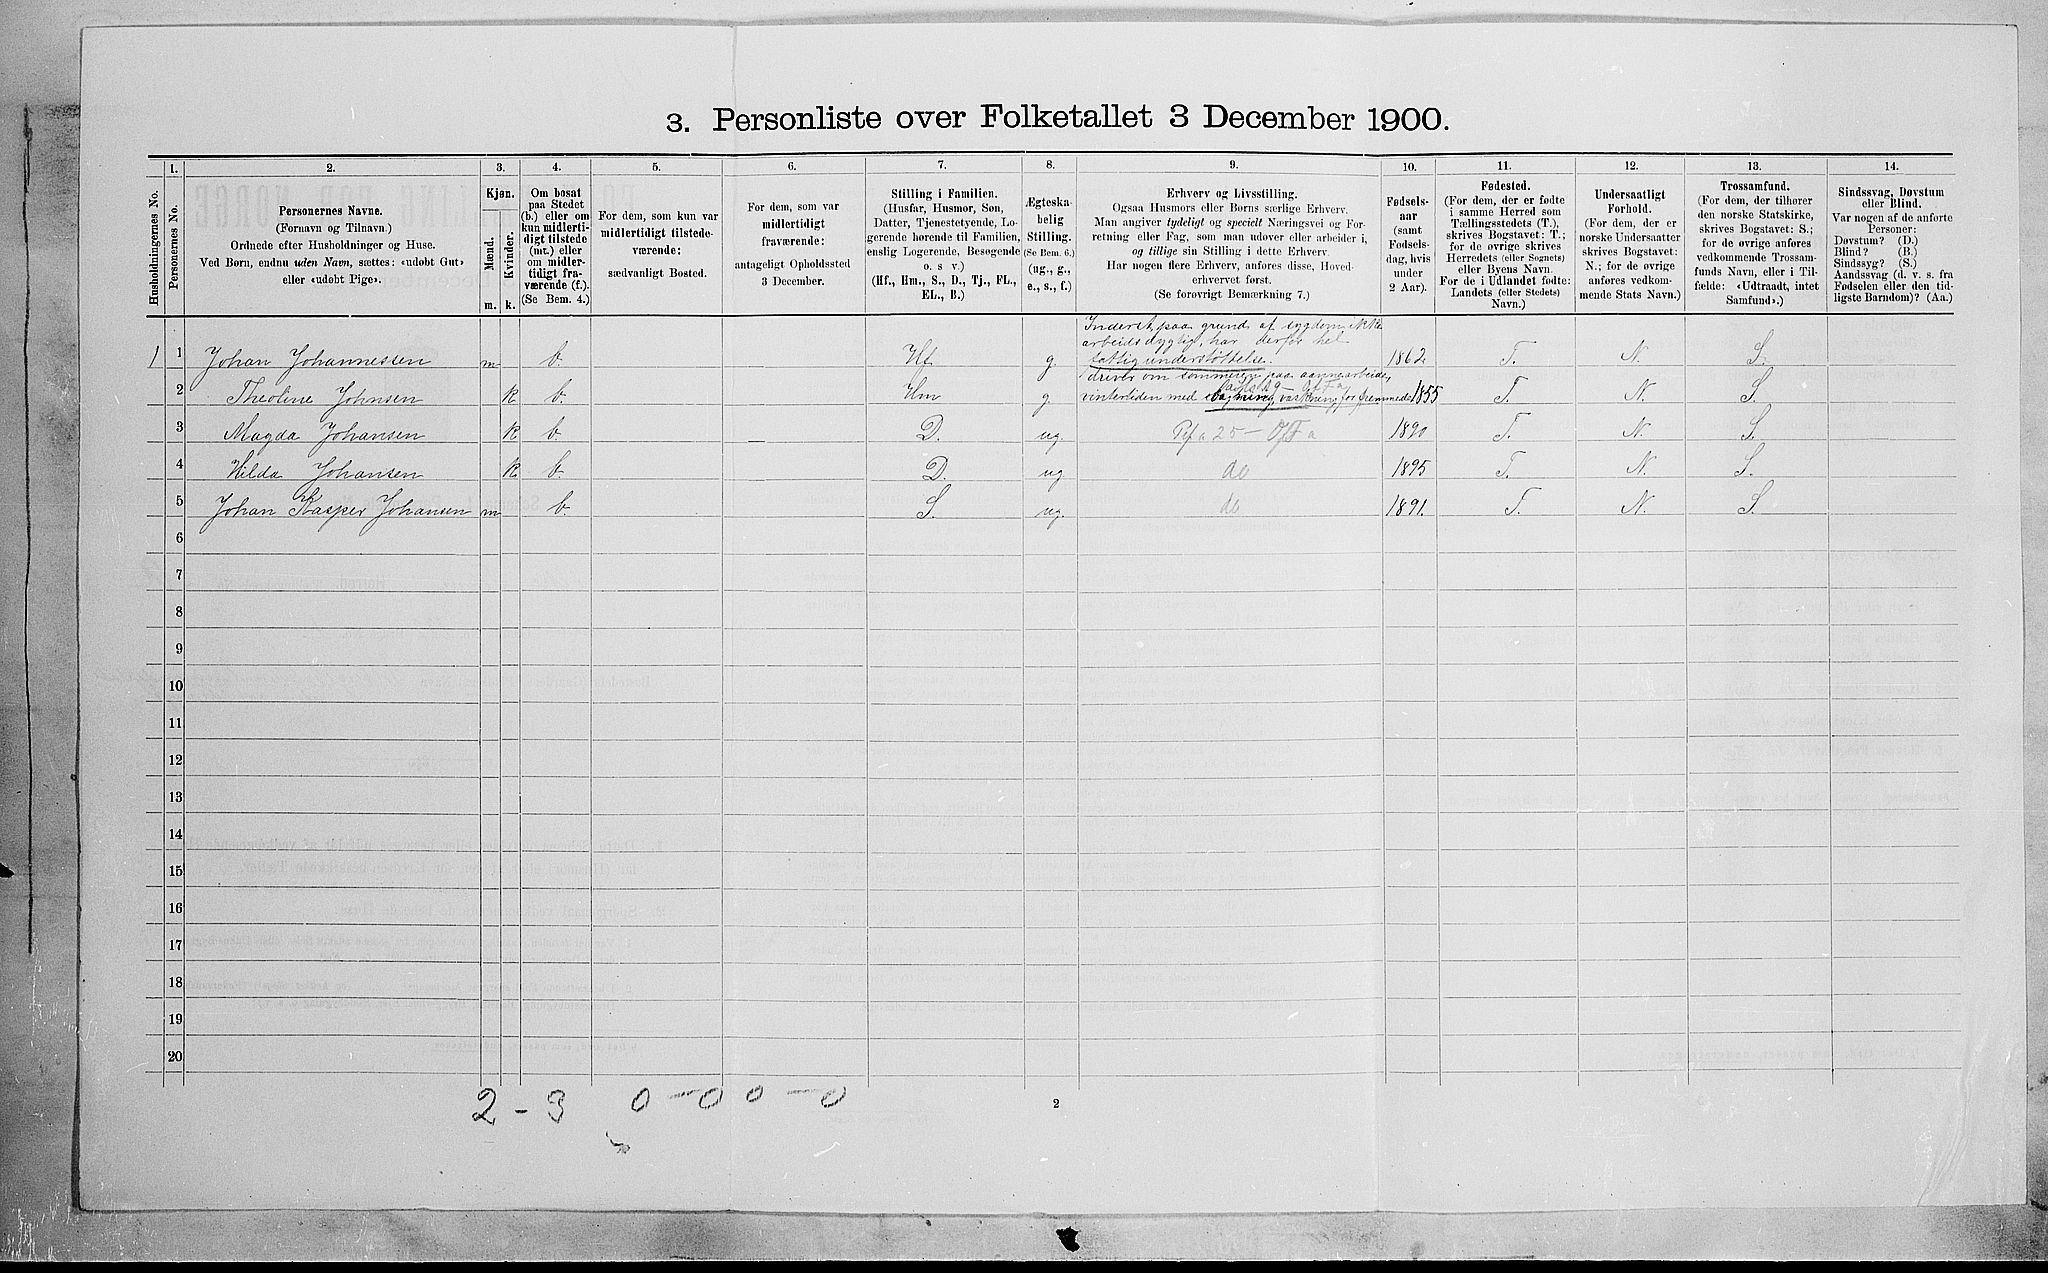 3. Personliste over Folketallet 3 December 1900.
1. 2. 3. 4. 5. 6. 7. 8. 9. 10. 11. 12. 13. 14.
Husholdningernes No.
Personernes No.
Personernes Navne.
(Fornavn og Tilnavn.)
Ordnede efter Husholdninger og Huse.
Ved Børn, endnu uden Navn, sættes: «udøbt Gut»
eller «udøbt Pige».
Kjøn.
Mænd.
Kvinder.
m. k.
Om bosat
paa Stedet
(b.) eller om
kun midlerti-
digt tilstede
(mt.) eller
om midler-
tidigt fra-
værende (f.).
(Se Bem. 4.)
For dem, som kun var
midlertidigt tilstede-
værende:
sædvanligt Bosted.
For dem, som var
midlertidigt
fraværende:
antageligt Opholdssted
3 December.
Stilling i Familien.
(Husfar, Husmor, Søn,
Datter, Tjenestetyende, Lo-
gerende hørende til Familien,
enslig Logerende, Besøgende
o. s v.)
(Hf., Hm., S., D., Tj., FL.,
EL., B.)
Ægteska-
belig
Stilling.
(Se Bem. 6.)
(ug., g.,
e., s., f.)
Erhverv og Livsstilling.
Ogsaa Husmors eller Børns særlige Erhverv.
Man angiver tydeligt og specielt Næringsvei og For-
retning eller Fag, som man udover eller arbeider i,
og tillige sin Stilling i dette Erhverv.
Har nogen flere Erhverv, anføres disse, Hoved-
erhvervet først.
(Se forøvrigt Bemærkning 7.)
Fødsels-
aar
(samt
Fødsels-
dag, hvis
under
2 Aar).
Fødested.
(For dem, der er fødte
i samme Herred som
Tællingsstedets (T.),
skrives Bogstavet: T.;
for de øvrige skrives
Herredets (eller Sognets)
eller Byens Navn.
For de i Udlandet fødte:
Landets (eller Stedets)
Navn.)
Undersaatligt
Forhold.
(For dem, der er
norske Undersaatter
skrives Bogstavet:
N.; for de øvrige
anføres vedkom-
mende Stats Navn.)
Trossamfund.
(For dem, der tilhører
den norske Statskirke,
skrives Bogstavet: S.;
for de øvrige anføres
vedkommende Trossam-
funds Navn, eller i Til-
fælde: «Udtraadt, intet
Samfund».)
Sindssvag, Døvstum
eller Blind.
Var nogen af de anførte
Personer:
Døvstum? (D.)
Blind? (B.)
Sindssyg? (S.)
Aandssvag (d. v. s. fra
Fødselen eller den tid-
ligste Barndom)? (Aa.)
Inderst, paa grund af sygdom ikke
arbeidsdygtig, har derfor hel
fattigunderstøttelse.
1 1 Johan Johannessen m b. Hf g. 1862 T. N. S.
driver om sommeren paa aannearbeide,
2 Theoline Johnsen k b. Hm g. vintertiden med vaskning for fremmede 1855 T. N. S.
3 Magda Johansen k b. D. ug. 1890 T. N. S.
4 Hilda Johansen k b. D. ug do 1895 T. N. S.
5 Johan Kasper Johansen m b. S. ug. do 1891. T. N. S.
6
7
8
9
10
11
12
13
14
15
16
17
18
19
20
2 - 3 0 - 0 0 - 0
2